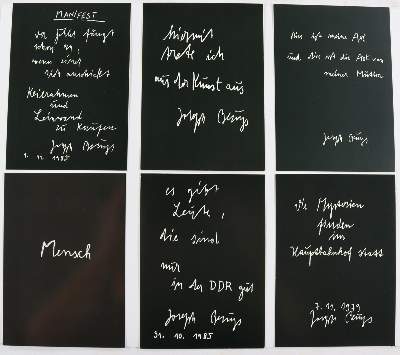 MANIFEST
der Fehler fängt
schon an,
wenn einer
sich anschickt
Keilrahmen
und
Leinwand
zu kaufen.
Joseph Beuys
1. 11. 1985
hiermit
trete ich
aus der Kunst aus
Joseph Beuys
Dies ist meine Axt
und dies ist die Axt von
meiner Mutter
Joseph Beuys
Mensch
es gibt
Leute,
die sind
nur
in der DDR gut
Joseph Beuys
31. 10. 1985
die Mysterien
finden
im
Hauptbahnhof statt
7. 11. 1979
Joseph Beuys